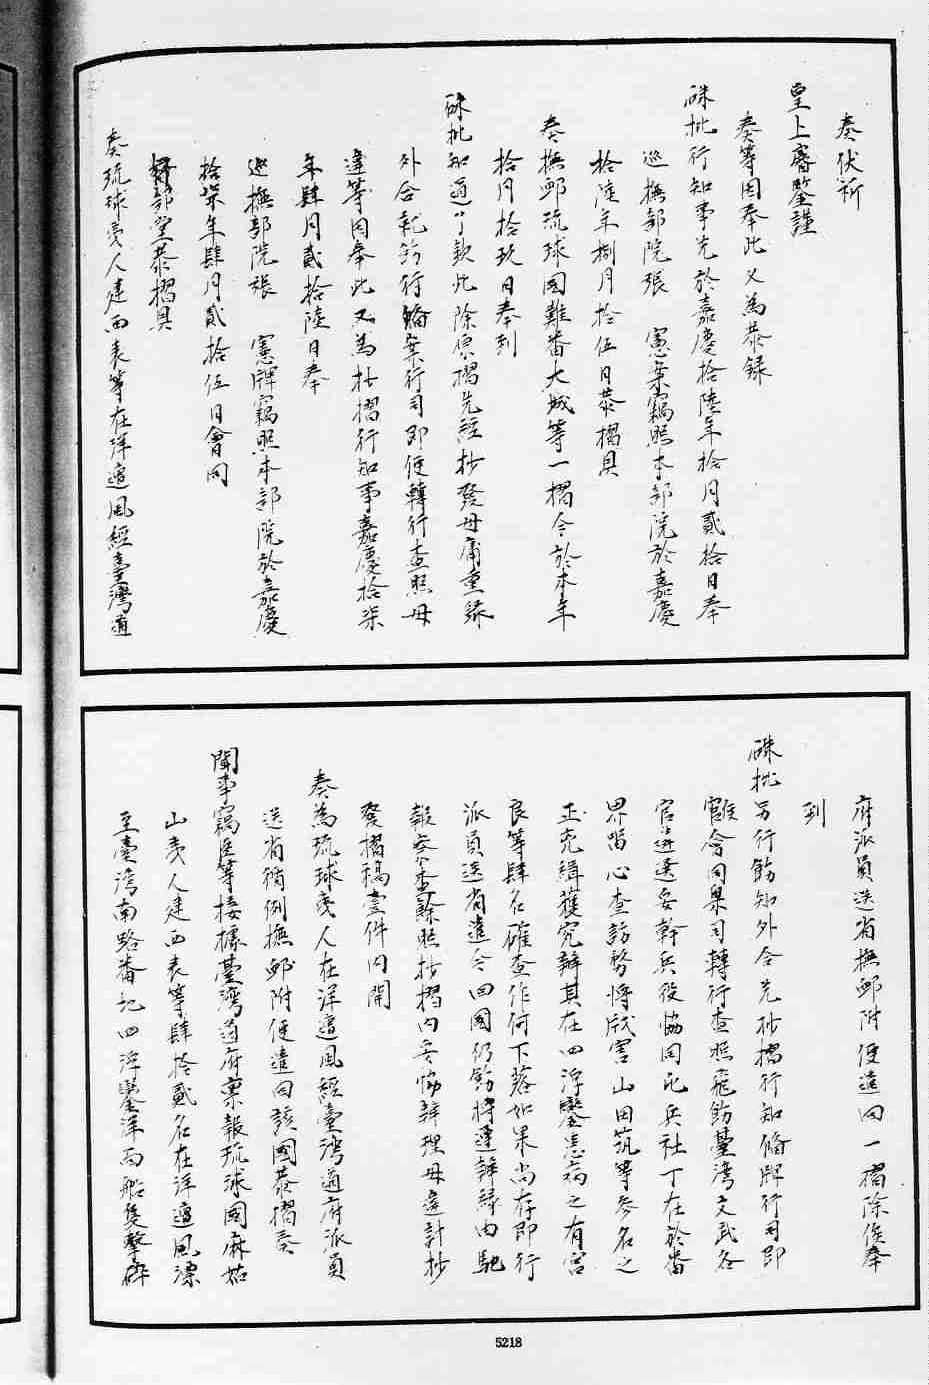 奏伏祈
皇上睿鑒謹
奏等因奉此又為恭録
硃批行知事先於嘉慶拾陸年拾月貳拾日奉
巡撫部院張 憲案竊照本部院於嘉慶
拾陸年捌月拾伍日恭摺具
奏撫邮琉球國難番大城等一摺今於本年
拾月拾玖日奉到
硃批知道了欽此除原摺先經抄發毋庸重録
外合就行司即便轉行查照毋
違等因奉此又為抄摺行知事嘉慶拾柒
年肆月貳拾陸日奉
巡撫部院張 憲牌竊照本部院於嘉慶
拾柒年肆月貳拾伍日會同
督部堂恭摺具
奏琉球夷人建西表等在洋遭風經臺灣道
府派員送省撫邮附便遣回一摺除俟奉
到
硃批另行飭知外合先抄摺行知備牌行司即
會同臬司轉行查照飛飭臺灣文武各
官選妥幹兵役協同屯兵社丁在於番
界留心查訪務將戕害山田筑等参名之
正兇緝獲究辦其在四浮鑾患病之有宮
良等肆名確查作何下落如果尚存即行
派員送省遣令回國仍飭將遵辦縁由馳
報察查餘照抄摺内妥協辦理毋違計抄
發摺稿壹件内開
奏為琉球夷人在洋遭風經臺灣道府派員
送省循例撫邮附便遣回該國恭摺奏
聞事竊臣等接據臺灣道府稟報琉球國麻姑
山夷人建西表等肆拾貳名在洋遭風漂
至臺灣南路番地四浮鑾洋面船隻擊碎
5218